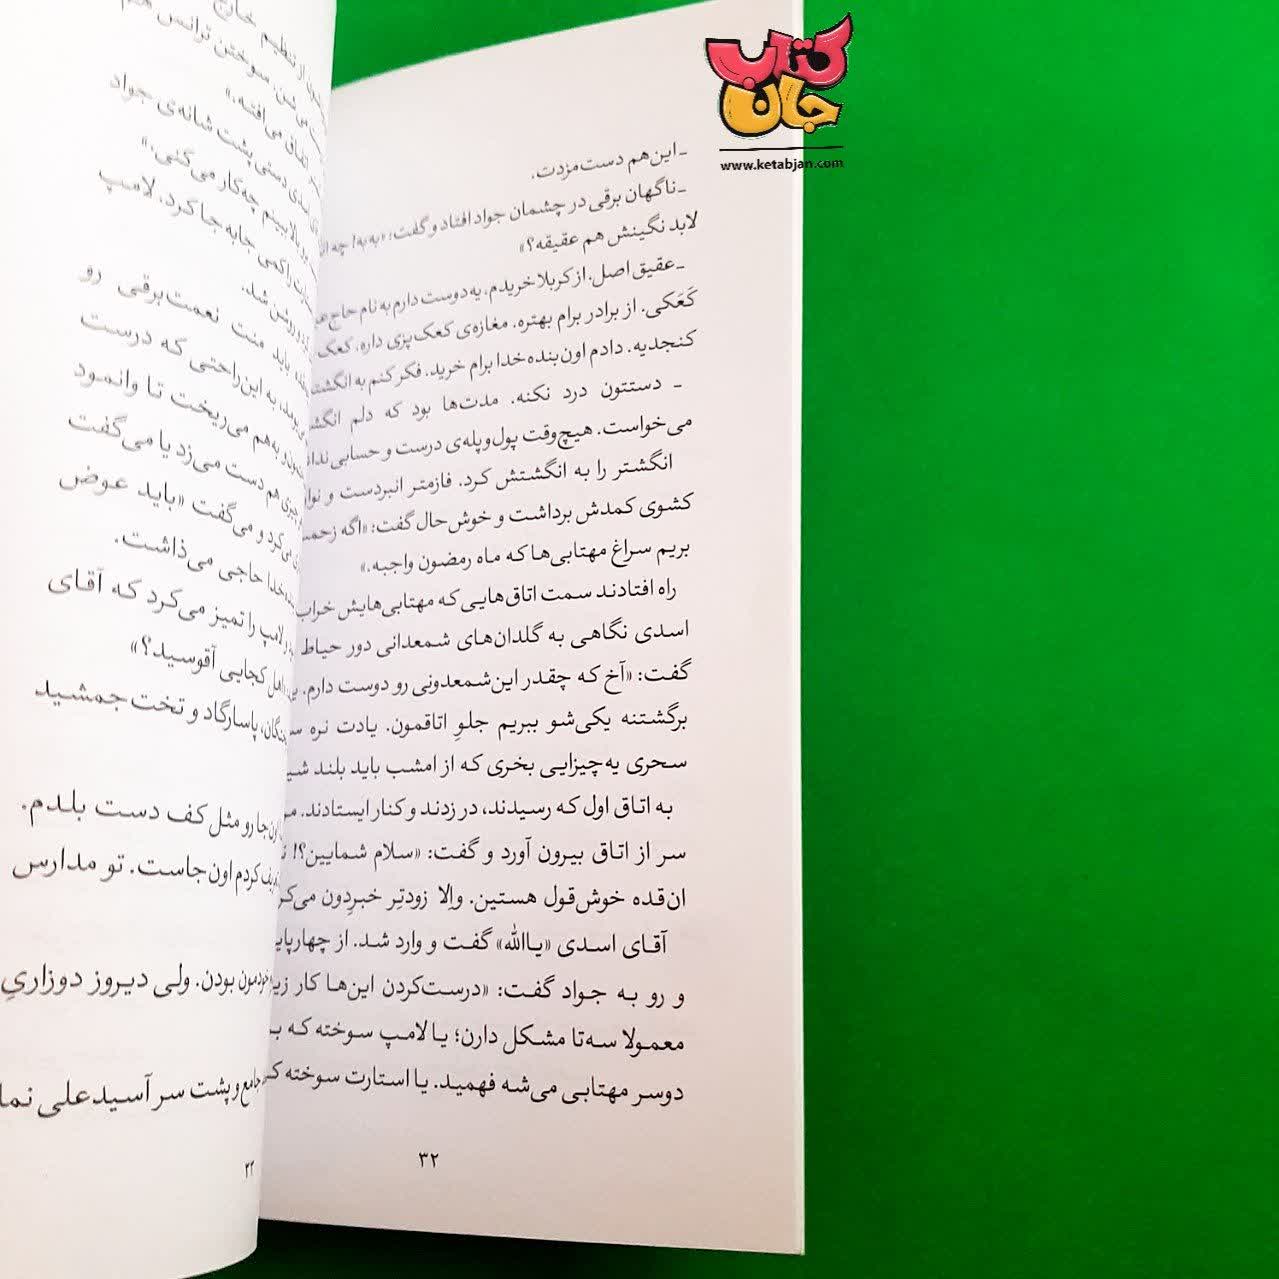 کتاب
جان
www.ketabjan.com
ـ این‌هم دست‌مزدت.
ـ ناگهان برقی در چشمان جواد افتاد و گفت: «به به! چه
لابد نگینش هم عقیقه؟»
ـ عقیق اصل. از کربلا خریدم. یه دوست دارم به نام حاج
کَعَکی. از برادر برام بهتره. مغازه‌ی کعک‌پزی داره. کعک
کنجدیه. دادم اون‌بنده خدا برام خرید. فکر کنم به انگشت
ـ دستتون درد نکنه. مدت‌ها بود که دلم
می‌خواست. هیچ‌وقت پول‌وپله‌ی درست و حسابی
انگشتر را به انگشتش کرد. فازمتر انبردست و
کشوی کمدش برداشت و خوش‌حال گفت: «اگه
بریم سراغ مهتابی‌ها که ماه رمضون واجبه.»
راه افتادند سمت اتاق‌هایی که مهتابی‌هایش خراب
اسدی نگاهی به گلدان‌های شمعدانی دور حیاط
گفت: «آخ که چقدر این‌شمعدونی رو دوست دارم.
برگشتنه یکی‌شو ببریم جلوِ اتاقمون. یادت نره
سحری یه‌چیزایی بخری که از امشب باید بلند
به اتاق اول که رسیدند، در زدند و کنار ایستادند.
سر از اتاق بیرون آورد و گفت: «سلام شمایین؟!
ان‌قده خوش‌قول هستین. واِلا زودتر خبرِدون
آقای اسدی «یاالله» گفت و وارد شد. از
و رو به جواد گفت: «درست‌کردن این‌ها کار
معمولا سه‌تا مشکل دارن؛ یا لامپ سوخته که
دوسر مهتابی می‌شه فهمید. یا استارت سوخته
۳۲
از تنظیم خارج
می شن. سوختن ترانس هم
اتفاق می‌افته.»
اسدی دستی پشت شانه‌ی جواد
ببینم چه‌کار می‌کنی.»
را کمی جابه جا کرد. لامپ
روشن شد.
باید منت نعمت‌برقی رو
به این‌راحتی که درست
به‌هم می‌ریخت تا وانمود
هم دست می‌زد یا می‌گفت
می‌کرد و می‌گفت «باید عوض
خدا حاجی می‌ذاشت.
لامپ را تمیز می‌کرد که آقای
اهل کجایی آقوسید؟»
پاسارگاد و تخت جمشید
رو مثل کف دست بلدم.
کردم اون‌جاست. تو مدارس
خودمون بودن. ولی دیروز دوزاریِ
جامع و پشت سر آسیدعلی